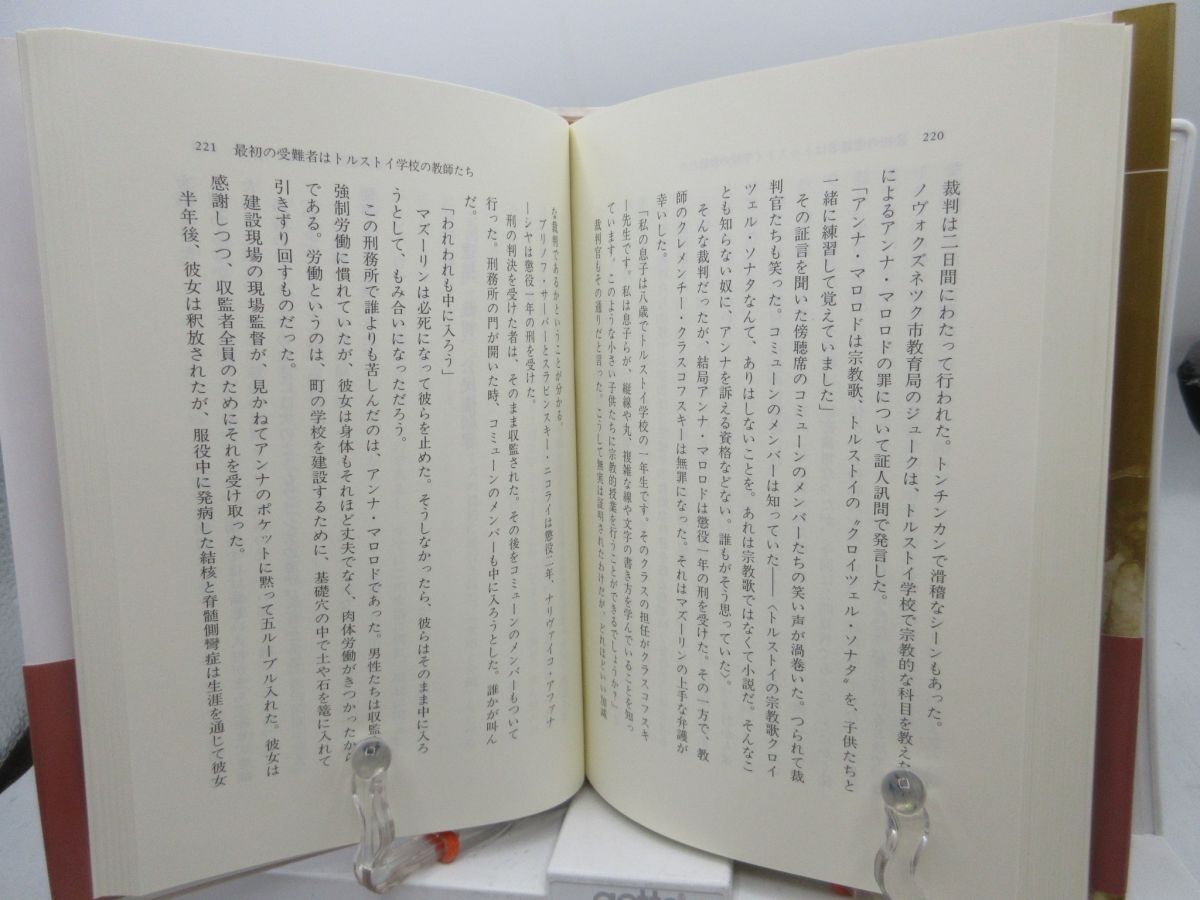 220
裁判は二日間にわたって行われた。トンチンカンで滑稽なシーンもあった。
ノヴォクズネツク市教育局のジュークは、トルストイ学校で宗教的な科目を教えた
によるアンナ・マロロドの罪について証人訊問で発言した。
「アンナ・マロロドは宗教歌、トルストイの〝クロイツェル・ソナタ〟を、子供たちと
一緒に練習して覚えていました」
その証言を聞いた傍聴席のコミューンのメンバーたちの笑い声が渦巻いた。つられて裁
判官たちも笑った。コミューンのメンバーは知っていた――〈トルストイの宗教歌クロイ
ツェル・ソナタなんて、ありはしないことを。あれは宗教歌ではなくて小説だ。そんなこ
とも知らない奴に、アンナを訴える資格などない。誰もがそう思っていた〉。
そんな裁判だったが、結局アンナ・マロロドは懲役一年の刑を受けた。その一方で、教
師のクレメンチー・クラスコフスキーは無罪になった。それはマズーリンの上手な弁護が
幸いした。
「私の息子は八歳でトルストイ学校の一年生です。そのクラスの担任がクラスコフスキ
ー先生です。私は息子らが、縦線や丸、複雑な線や文字の書き方を学んでいることを知っ
ています。このような小さい子供たちに宗教的授業を行うことができるでしょうか？」
裁判官もその通りだと言った。こうして無実は証明されたわけだが、どれほどいい加減
221 最初の受難者はトルストイ学校の教師たち
な裁判であるかということが分かる。
ブリノフ・サーバーとスラビンスキー・ニコライは懲役二年、ナリヴァイコ・アファナ
ーシヤは懲役一年の刑を受けた。
刑の判決を受けた者は、そのまま収監された。その後をコミューンのメンバーもついて
行った。刑務所の門が開いた時、コミューンのメンバーも中に入ろうとした。誰かが叫ん
だ。
「われわれも中に入ろう」
マズーリンは必死になって彼らを止めた。そうしなかったら、彼らはそのまま中に入ろ
うとして、もみ合いになっただろう。
この刑務所で誰よりも苦しんだのは、アンナ・マロロドであった。男性たちは収監
強制労働に慣れていたが、彼女は身体もそれほど丈夫でなく、肉体労働がきつかったから
である。労働というのは、町の学校を建設するために、基礎穴の中で土や石を籠に入れて
引きずり回すものだった。
建設現場の現場監督が、見かねてアンナのポケットに黙って五ルーブル入れた。彼女は
感謝しつつ、収監者全員のためにそれを受け取った。
半年後、彼女は釈放されたが、服役中に発病した結核と脊髄側彎症は生涯を通じて彼女